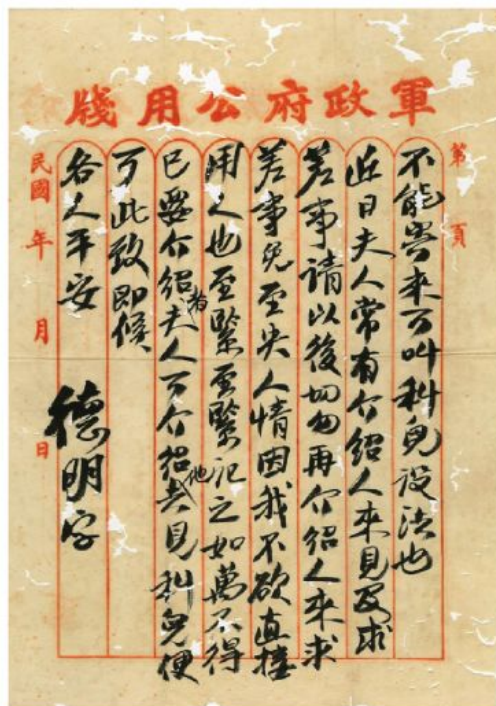 軍政府公用牋
第 頁
不能寄来可叫科兒設法也
近日夫人常有介紹人來見及求
差事請以後切勿再介紹人來求
差事免至失人情因我不欲直接
用人也至緊至緊記之如萬不得
已要介紹者夫人可介紹他去見科兒便
可此致即候
各人平安
德明字
民國 年 月 日